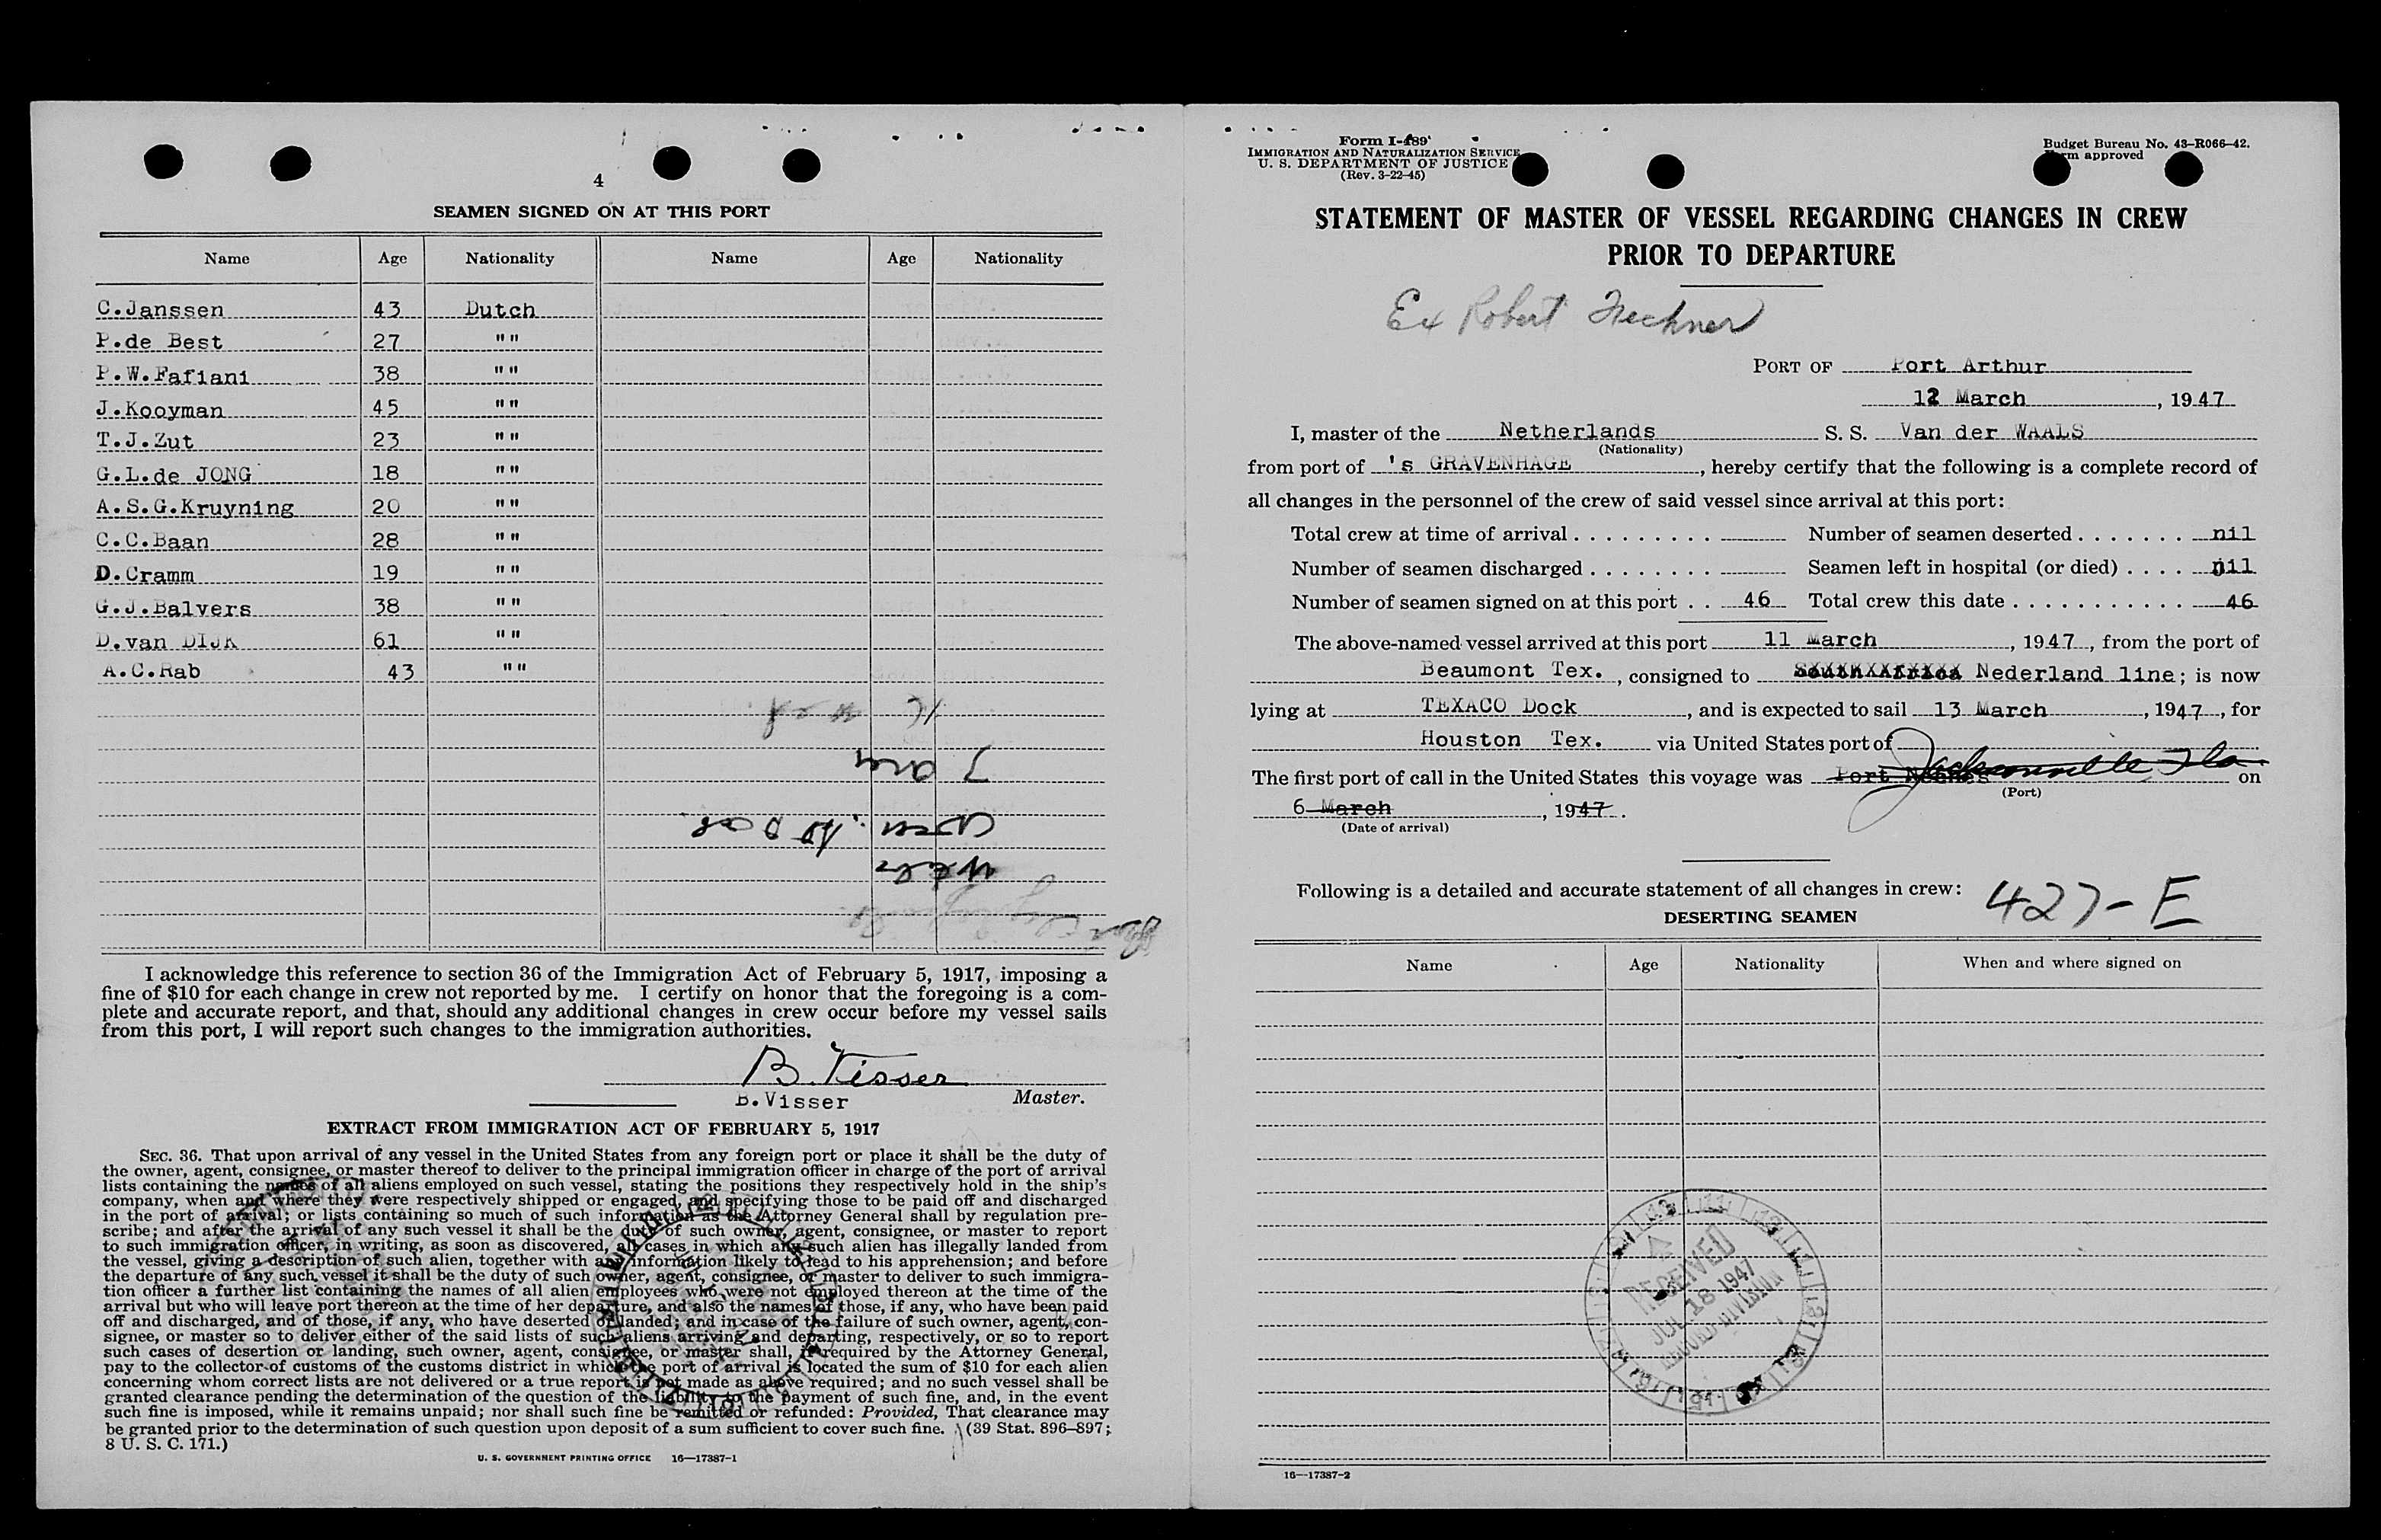 4
SEAMEN SIGNED ON AT THIS PORT
Name Age Nationality Name Age Nationality
C.Janssen 43 Dutch
P.de Best 27 "" ""
P.W.Fafiani 38 "" ""
J.Kooyman 45 "" ""
T.J.Zut 23 "" ""
G.L.de JONG 18 "" ""
A.S.G.Kruyning 20 "" ""
C.C.Baan 28 "" ""
D.Cramm 19 "" ""
G.J.Balvers 38 "" ""
D.van DIJK 61 "" ""
A.C.Rab 43 "" ""
I acknowledge this reference to section 36 of the Immigration Act of February 5, 1917, imposing a
fine of $10 for each change in crew not reported by me. I certify on honor that the foregoing is a com-
plete and accurate report, and that, should any additional changes in crew occur before my vessel sails
from this port, I will report such changes to the immigration authorities.
B. Visser
B.Visser Master.
EXTRACT FROM IMMIGRATION ACT OF FEBRUARY 5, 1917
SEC. 36. That upon arrival of any vessel in the United States from any foreign port or place it shall be the duty of
the owner, agent, consignee, or master thereof to deliver to the principal immigration officer in charge of the port of arrival
lists containing the names of all aliens employed on such vessel, stating the positions they respectively hold in the ship's
company, when and where they were respectively shipped or engaged, and specifying those to be paid off and discharged
in the port of arrival; or lists containing so much of such information as the Attorney General shall by regulation pre-
scribe; and after the arrival of any such vessel it shall be the duty of such owner, agent, consignee, or master to report
to such immigration officer, in writing, as soon as discovered, all cases in which any such alien has illegally landed from
the vessel, giving a description of such alien, together with any information likely to lead to his apprehension; and before
the departure of any such vessel it shall be the duty of such owner, agent, consignee, or master to deliver to such immigra-
tion officer a further list containing the names of all alien employees who were not employed thereon at the time of the
arrival but who will leave port thereon at the time of her departure, and also the names of those, if any, who have been paid
off and discharged, and of those, if any, who have deserted or landed; and in case of the failure of such owner, agent, con-
signee, or master so to deliver either of the said lists of such aliens arriving and departing, respectively, or so to report
such cases of desertion or landing, such owner, agent, consignee, or master shall, if required by the Attorney General,
pay to the collector of customs of the customs district in which the port of arrival is located the sum of $10 for each alien
concerning whom correct lists are not delivered or a true report is not made as above required; and no such vessel shall be
granted clearance pending the determination of the question of the liability to the payment of such fine, and, in the event
such fine is imposed, while it remains unpaid; nor shall such fine be remitted or refunded: Provided, That clearance may
be granted prior to the determination of such question upon deposit of a sum sufficient to cover such fine. (39 Stat. 896–897;
8 U. S. C. 171.)
U. S. GOVERNMENT PRINTING OFFICE 16—17387-1
Form I-489
IMMIGRATION AND NATURALIZATION SERVICE
U. S. DEPARTMENT OF JUSTICE
(Rev. 3-22-45)
Budget Bureau No. 43-R066-42.
Form approved
STATEMENT OF MASTER OF VESSEL REGARDING CHANGES IN CREW
PRIOR TO DEPARTURE
Ex Robert Fechner
PORT OF Port Arthur
12 March, 1947
I, master of the Netherlands S. S. Van der WAALS
(Nationality)
from port of 's GRAVENHAGE, hereby certify that the following is a complete record of
all changes in the personnel of the crew of said vessel since arrival at this port:
Total crew at time of arrival . . . . . . . . . Number of seamen deserted . . . . . . . nil
Number of seamen discharged . . . . . . . . Seamen left in hospital (or died) . . . . nil
Number of seamen signed on at this port . . 46 Total crew this date . . . . . . . . . . . 46
The above-named vessel arrived at this port 11 March, 1947, from the port of
Beaumont Tex., consigned to South Africa Nederland line; is now
lying at TEXACO Dock, and is expected to sail 13 March, 1947, for
Houston Tex. via United States port of
The first port of call in the United States this voyage was Port Neches Jacksonville Fla on
(Port)
6 March, 1947.
(Date of arrival)
Following is a detailed and accurate statement of all changes in crew:
427-E
DESERTING SEAMEN
Name Age Nationality When and where signed on
RECEIVED
JUL 18 1947
16—17387-2